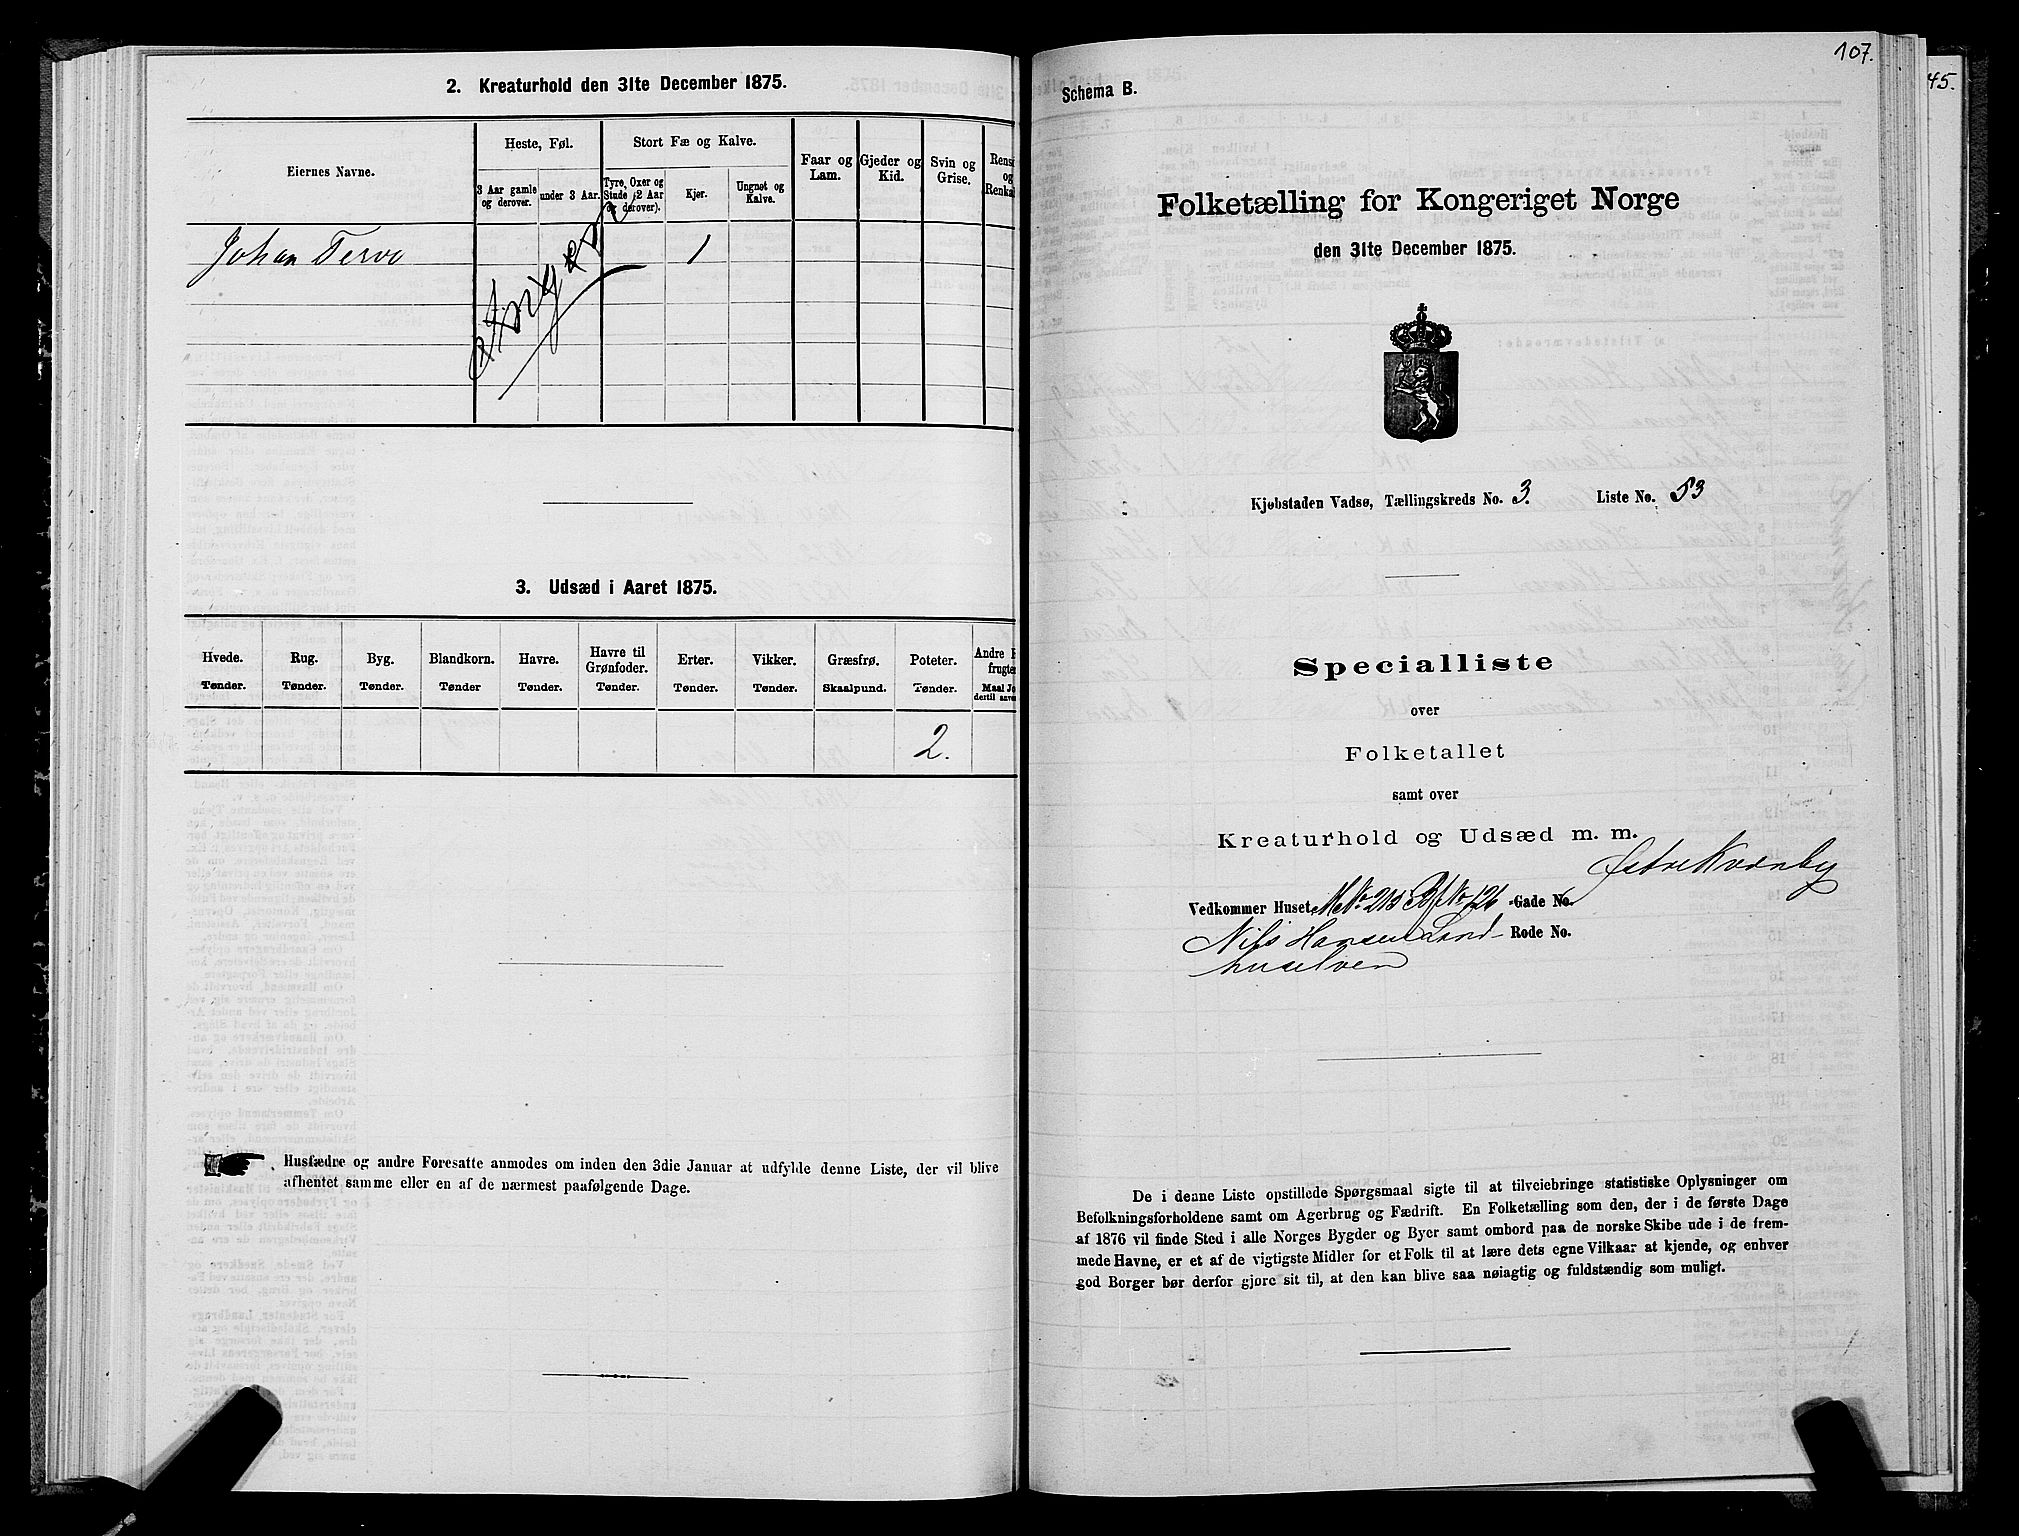 2. Kreaturhold den 31te December 1875.
Eiernes Navne.
Heste, Føl.
3 Aar gamle og derover.
under 3 Aar.
Stort Fæ og Kalve.
Tyre, Oxer og Stude (2 Aar og derover).
Kjør.
Ungnøt og Kalve.
Faar og Lam.
Gjeder og Kid.
Svin og Grise.
Rensd
og
Renkal
Johan Tervo 1
3. Udsæd i Aaret 1875.
Hvede. Rug. Byg. Blandkorn. Havre. Havre til Grønfoder. Erter. Vikker. Græsfrø. Poteter. Andre
frugter
Tønder. Tønder. Tønder. Tønder Tønder. Tønder. Tønder. Tønder. Skaalpund. Tønder. Maal Jo
dertil anve
2.
Husfædre og andre Foresatte anmodes om inden den 3die Januar at udfylde denne Liste, der vil blive
afhentet samme eller en af de nærmest paafølgende Dage.
107.
45.
Schema B.
Folketælling for Kongeriget Norge
den 31te December 1875.
Kjøbstaden Vadsø, Tællingskreds No. 3. Liste No. 53
Specialliste
over
Folketallet
samt over
Kreaturhold og Udsæd m. m.
Østre Kvænby
Vedkommer Huset MNo 213 BfNo 126 -Gade No.
Nils Hansen Land- Rode No.
De i denne Liste opstillede Spørgsmaal sigte til at tilveiebringe statistiske Oplysninger om
Befolkningsforholdene samt om Agerbrug og Fædrift. En Folketælling som den, der i de første Dage
af 1876 vil finde Sted i alle Norges Bygder og Byer samt ombord paa de norske Skibe ude i de frem-
mede Havne, er et af de vigtigste Midler for et Folk til at lære dets egne Vilkaar at kjende, og enhver
god Borger bør derfor gjøre sit til, at den kan blive saa nøiagtig og fuldstændig som muligt.